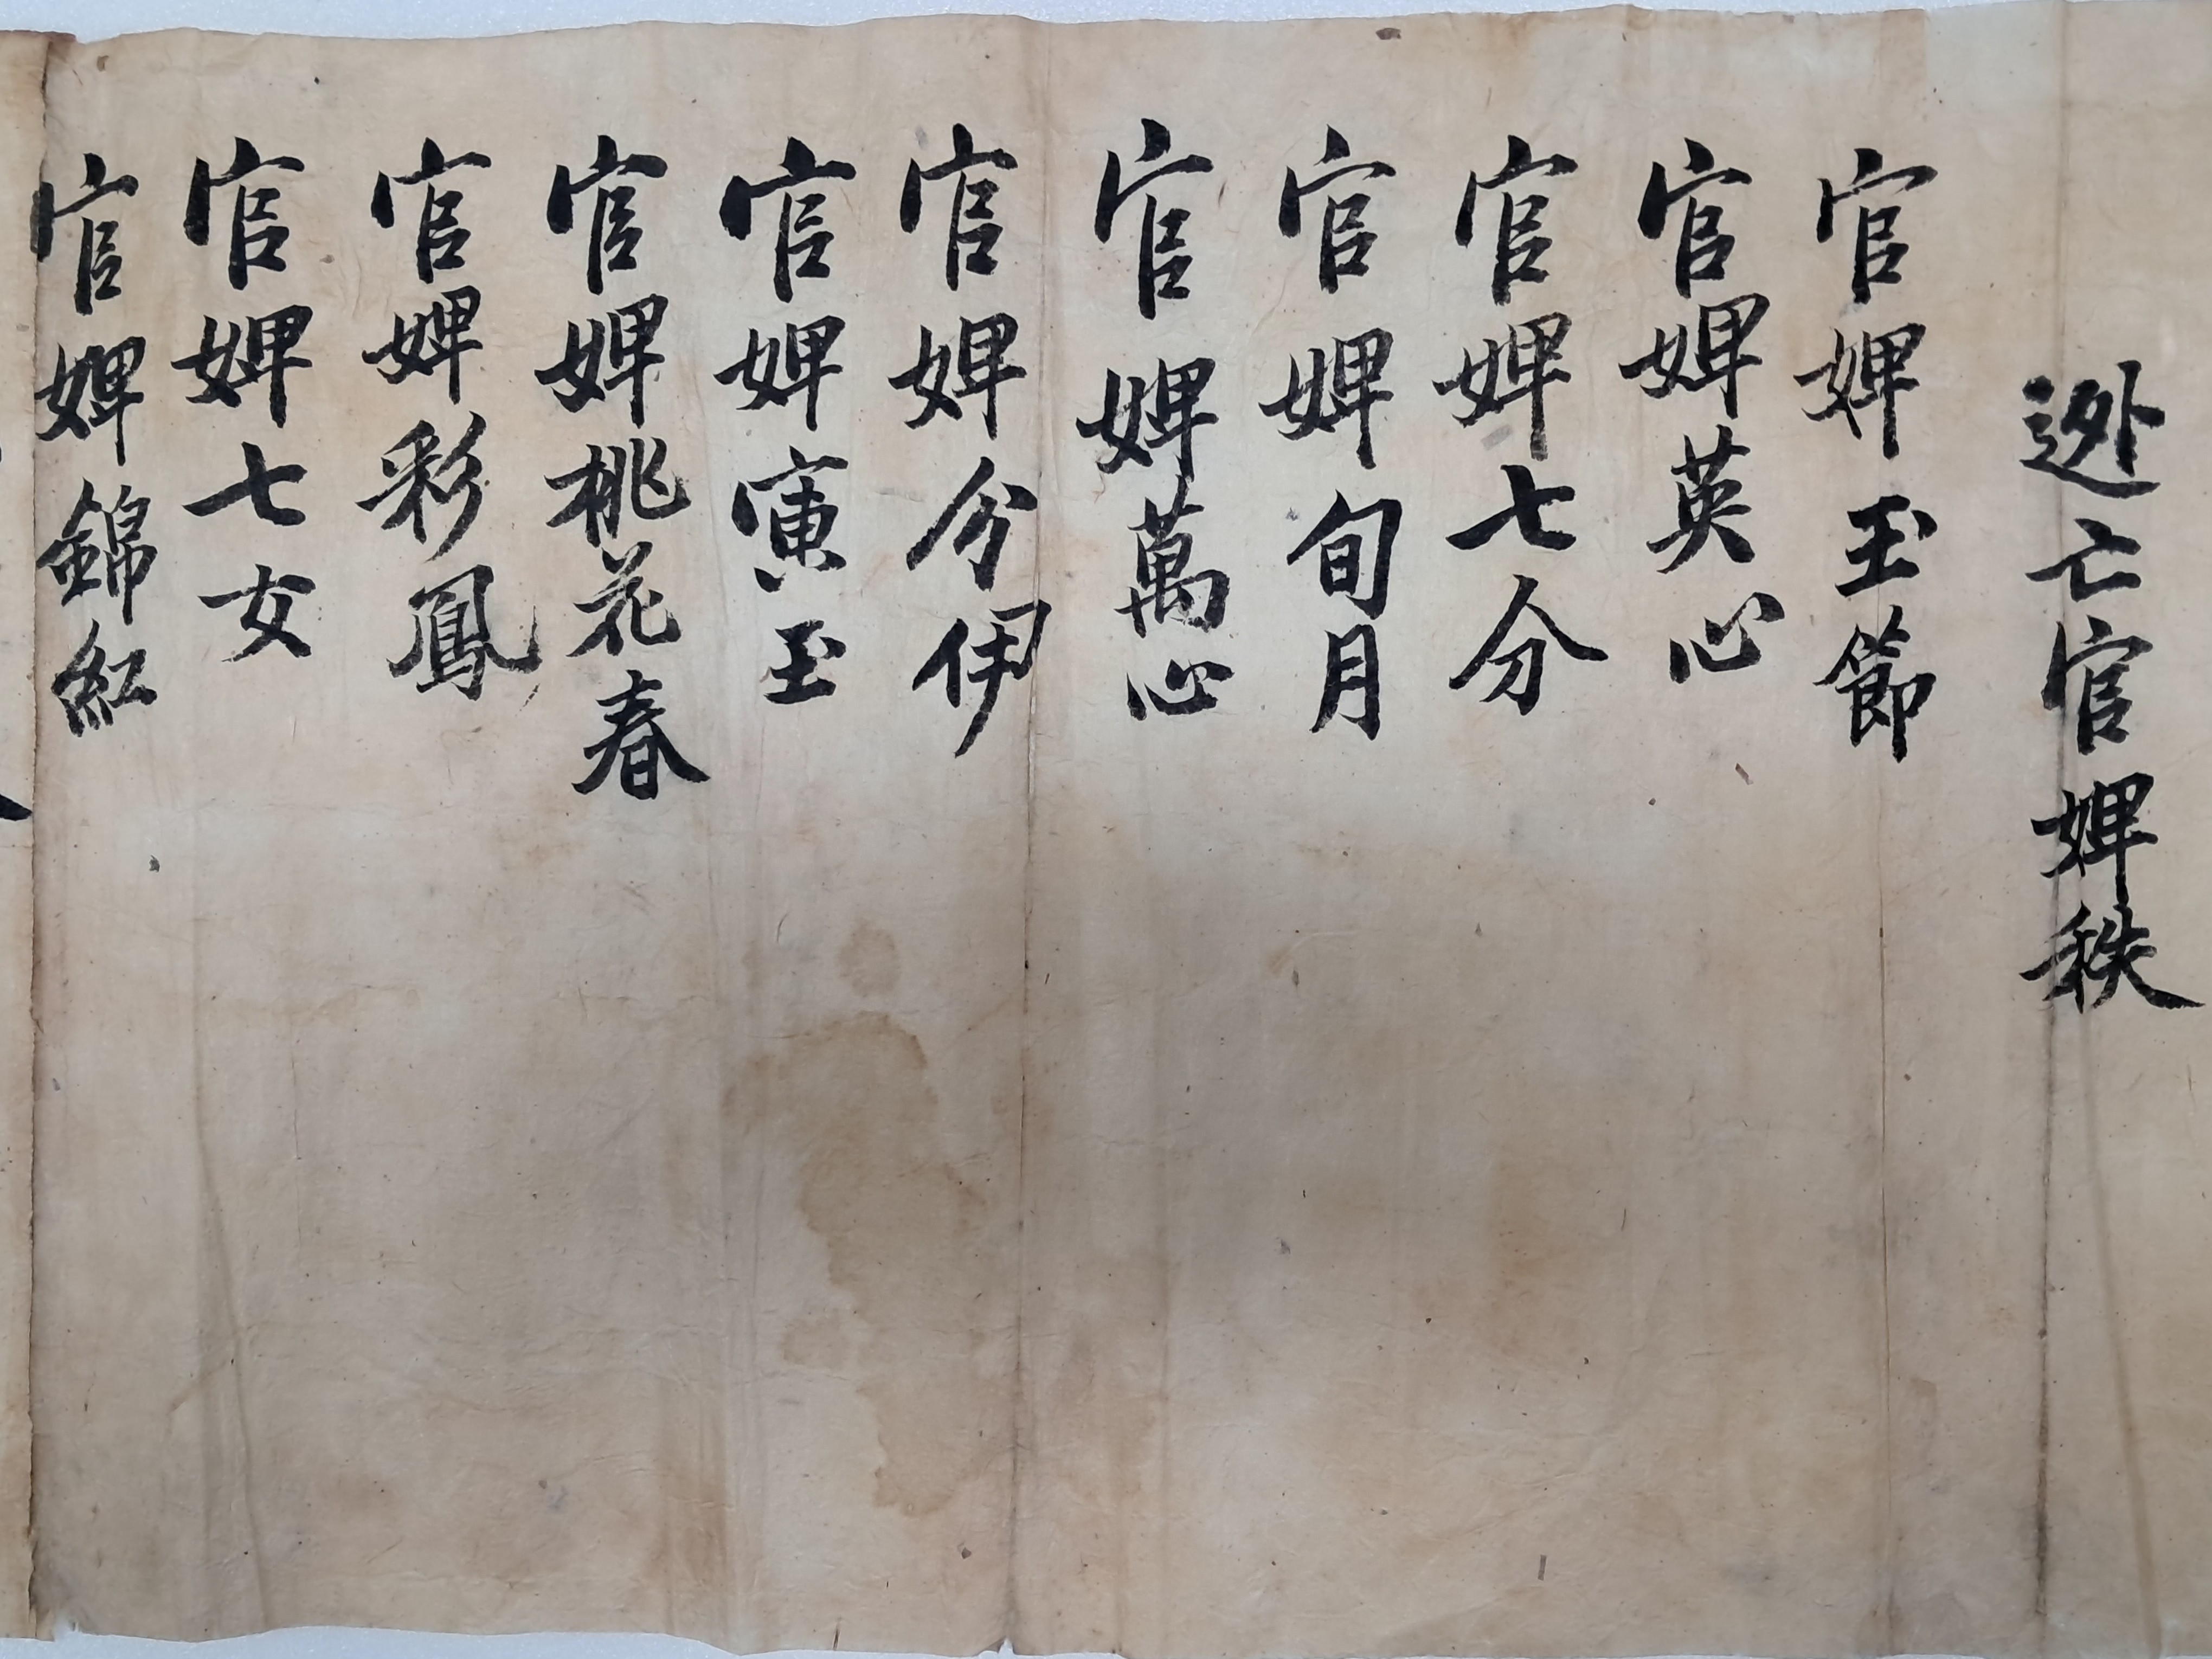 迯亡官婢秩
官婢玉節
官婢英心
官婢七分
官婢旬月
官婢萬心
官婢分伊
官婢寅玉
官婢桃花春
官婢彩鳳
官婢七女
官婢錦紅